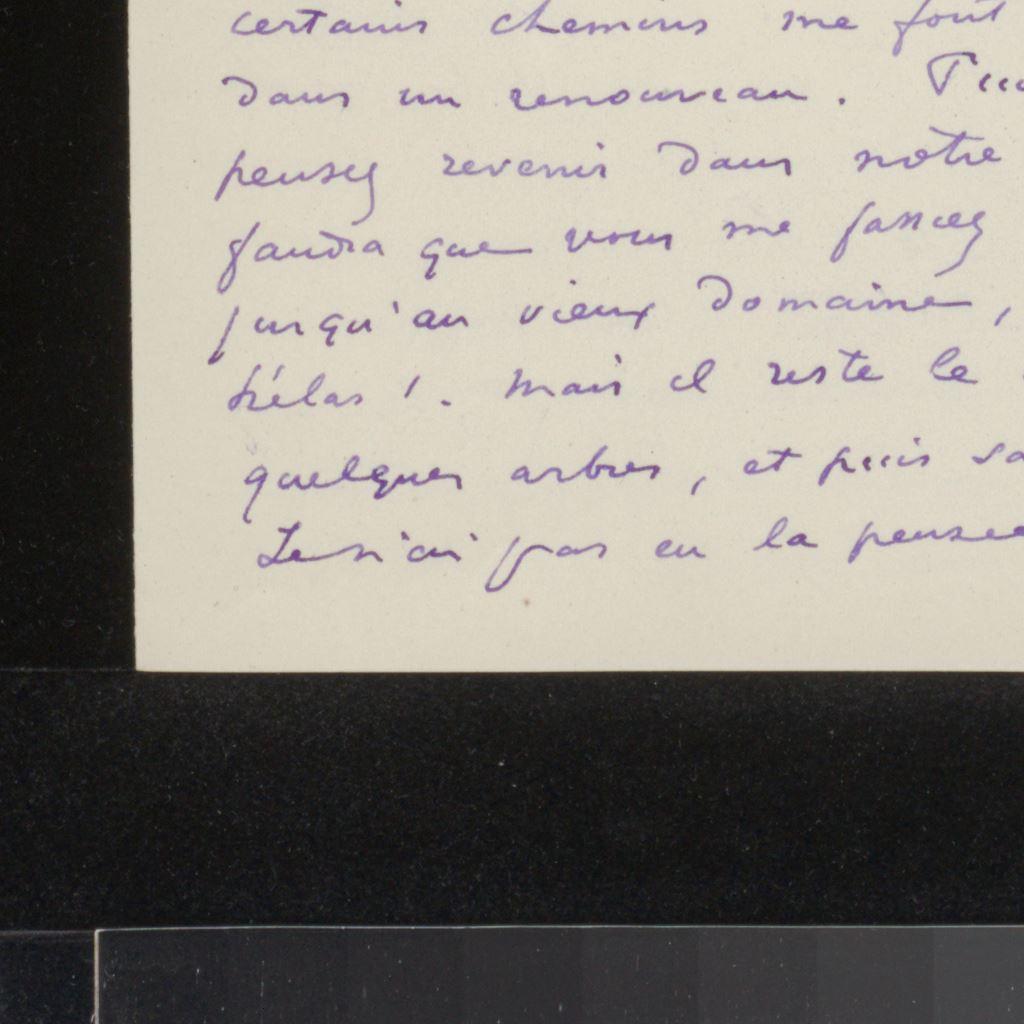 certains chemins me font
dans un renouveau.
pensez revenir dans notre
faudra que vous me fassiez
jusqu'au vieux domaine,
hélas !. Mais il reste le
quelques arbres, et puis
Je n'ai pas eu la pensée